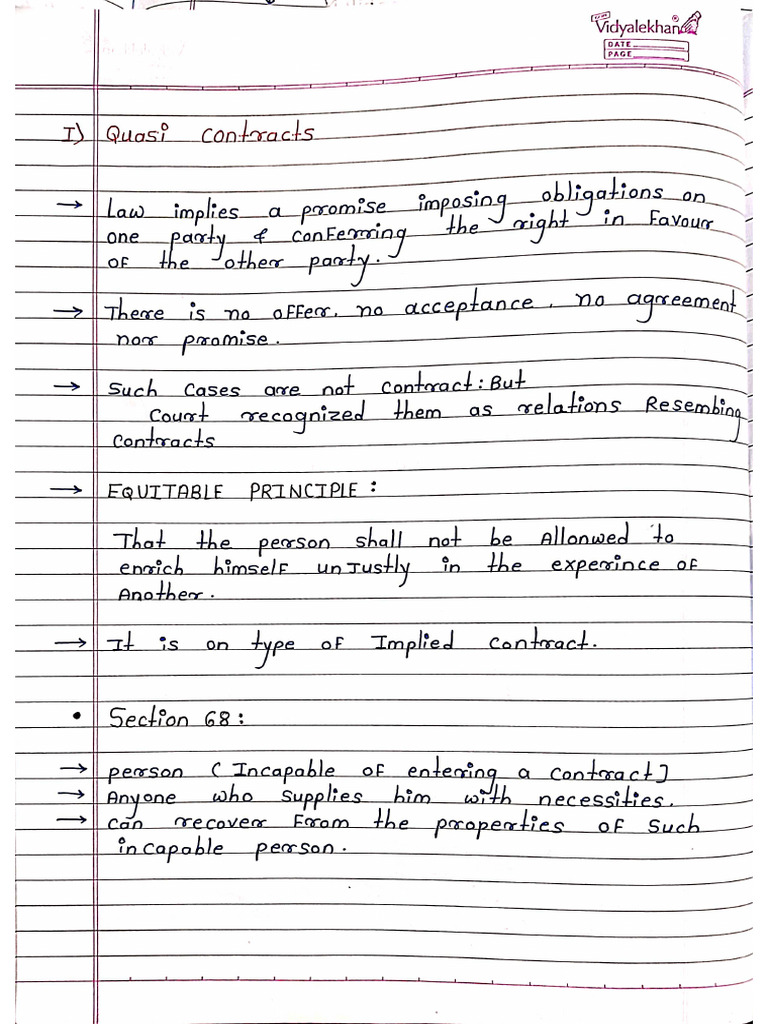 Vidyalekhan
DATE
PAGE
I) Quasi contracts
→ Law implies a promise imposing obligations on
one party & conferring the right in favour
of the other party.
→ There is no offer, no acceptance, no agreement
nor promise.
→ Such cases are not contract: But
Court recognized them as relations Resembing
contracts
→ EQUITABLE PRINCIPLE:
That the person shall not be Allonwed to
enrich himself unJustly in the experince of
Another.
→ It is on type of Implied contract.
• Section 68:
→ person (Incapable of entering a contract]
→ Anyone who supplies him with necessities.
→ can recover From the properties of such
incapable person.